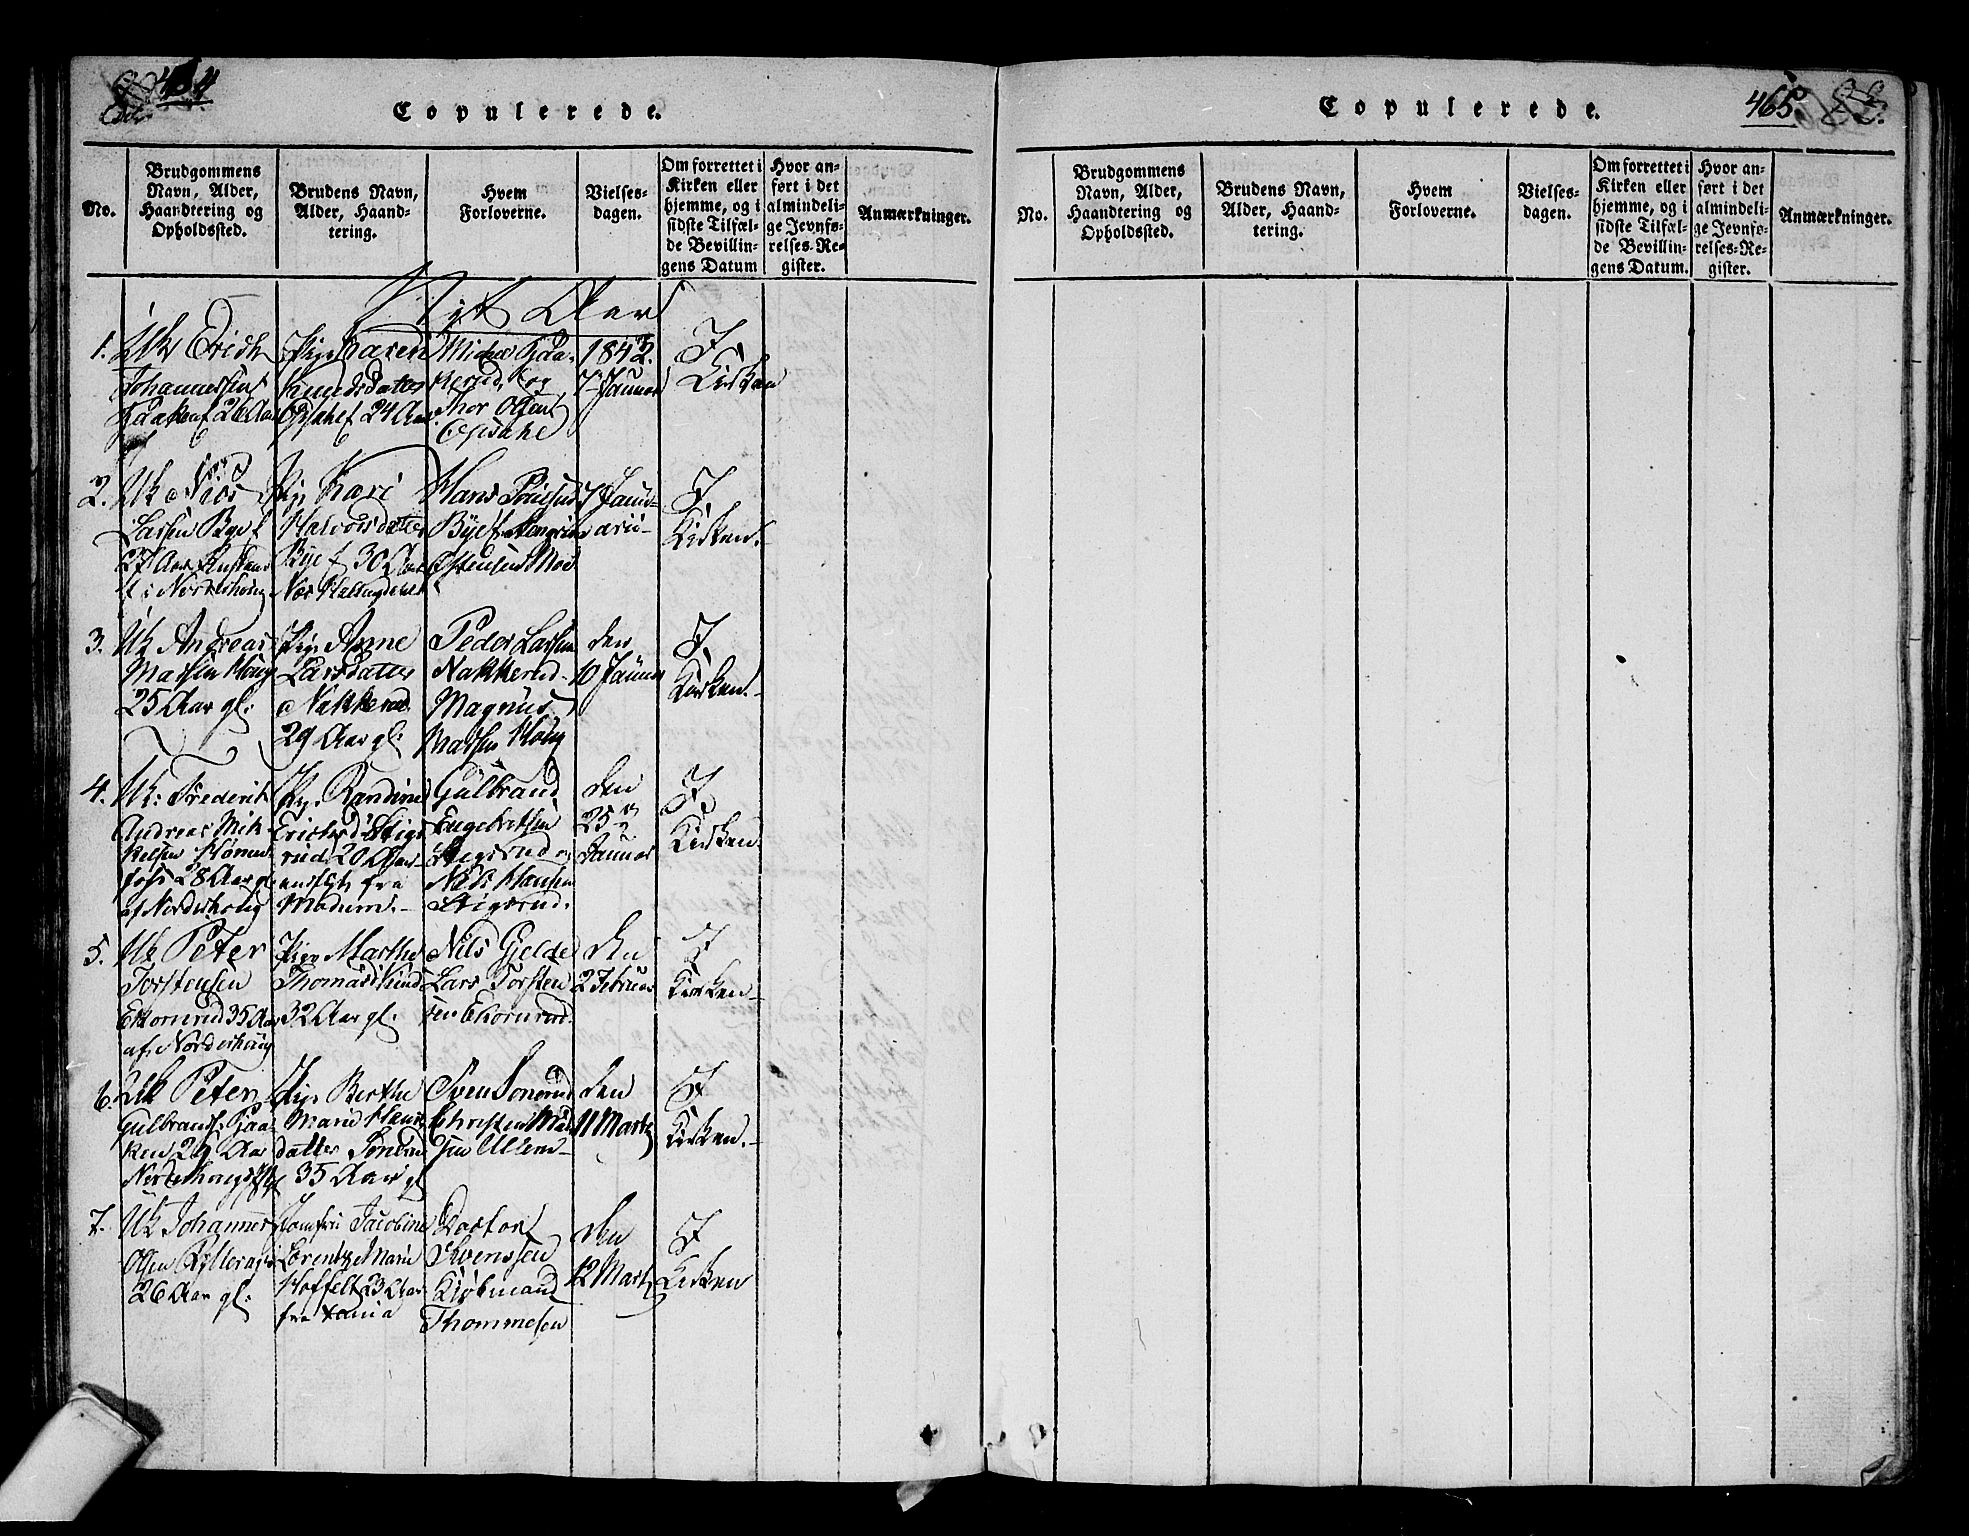 464
Copulerede.
No.
Brudgommens
Navn, Alder,
Haandtering og
Opholdssted.
Brudens Navn,
Alder, Haand-
tering.
Hvem
Forloverne.
Vielses-
dagen.
Om forrettet i
Kirken eller
hjemme, og i
sidste Tilfæl-
de Bevillin-
gens Datum
Hvor an-
ført i det
almindeli-
ge Jevnfø-
relses-Re-
gister.
Anmærkninger.
Nyt Aar
1.
Uk Erich
Johannessen
26 Aar
Pige Karen
Knudsdatter
Opsahl 24 Aar
og
Thor Olsen
Opsahl
1842.
7 Januar
I
Kirken
2.
Uk Niels
Larsen Bye
27 Aar
i Norderhoug
Pig. Kari
Halvorsdatter
Bye 30 Aar
Hans
Bye
Ostensen Moe
7 Janu-
arii
I
Kirken.
3.
Uk Andreas
Madsen Houg
25 Aar gl.
Pig. Anne
Larsdatter
Nakkerud
29 Aar gl.
Peder Larsen
Nakkerud
Magnus
Madsen Houg
den
10 Januar
I
Kirken.
4.
Uk: Frederik
Andreas Mik-
kelsen Hønen-
foss 28 Aar gl
af Norderhoug
Pig. Randine
Ericksd Stigs-
rud 20 Aar
fra
Modum.
Gulbrand
Engebretsen
Stigsrud og
Niels Hansen
Stigsrud.
den
25
Januar
I
Kirken
5.
Uk Peter
Torstensen
Ekornrud 35 Aar
af Norderhoug
Pige Marthe
Thomasd Rud
32 Aar gl.
Nils Gjelde
Lars Torsten
sen Ekornrud.
den
2 Februar
I
Kirken
6.
Uk Peter
Gulbrands. Kjaa-
ken 29 Aar
Norderhougs
Pig. Berthe
Marie Hans-
datter Sonerud
35 Aar gl
Sven Sonerud
Christen Mad-
sen Ullern
den
11 Martz
I
Kirken.
7.
Uk Johannes
Olsen
26 Aar gl.
Jomfru Jacobine
Lorentze Marie
Hoffelt 23 Aar
fra
Doctor
Svenssen
Kiøbmand
Thommesen
den
12 Martz
I
Kirken
Copulerede.
465
No.
Brudgommens
Navn, Alder,
Haandtering og
Opholdssted.
Brudens Navn,
Alder, Haand-
tering.
Hvem
Forloverne.
Vielses-
dagen.
Om forrettet i
Kirken eller
hjemme, og i
sidste Tilfæl-
de Bevillin-
gens Datum.
Hvor an-
ført i det
almindeli-
ge Jevnfø-
relses-Re-
gister.
Anmærkninger.